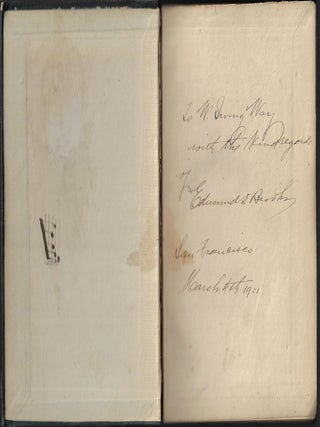 to W. Irving Way
with the Kind regards
of
Edmund D Brooks
San Francisco
March 1911